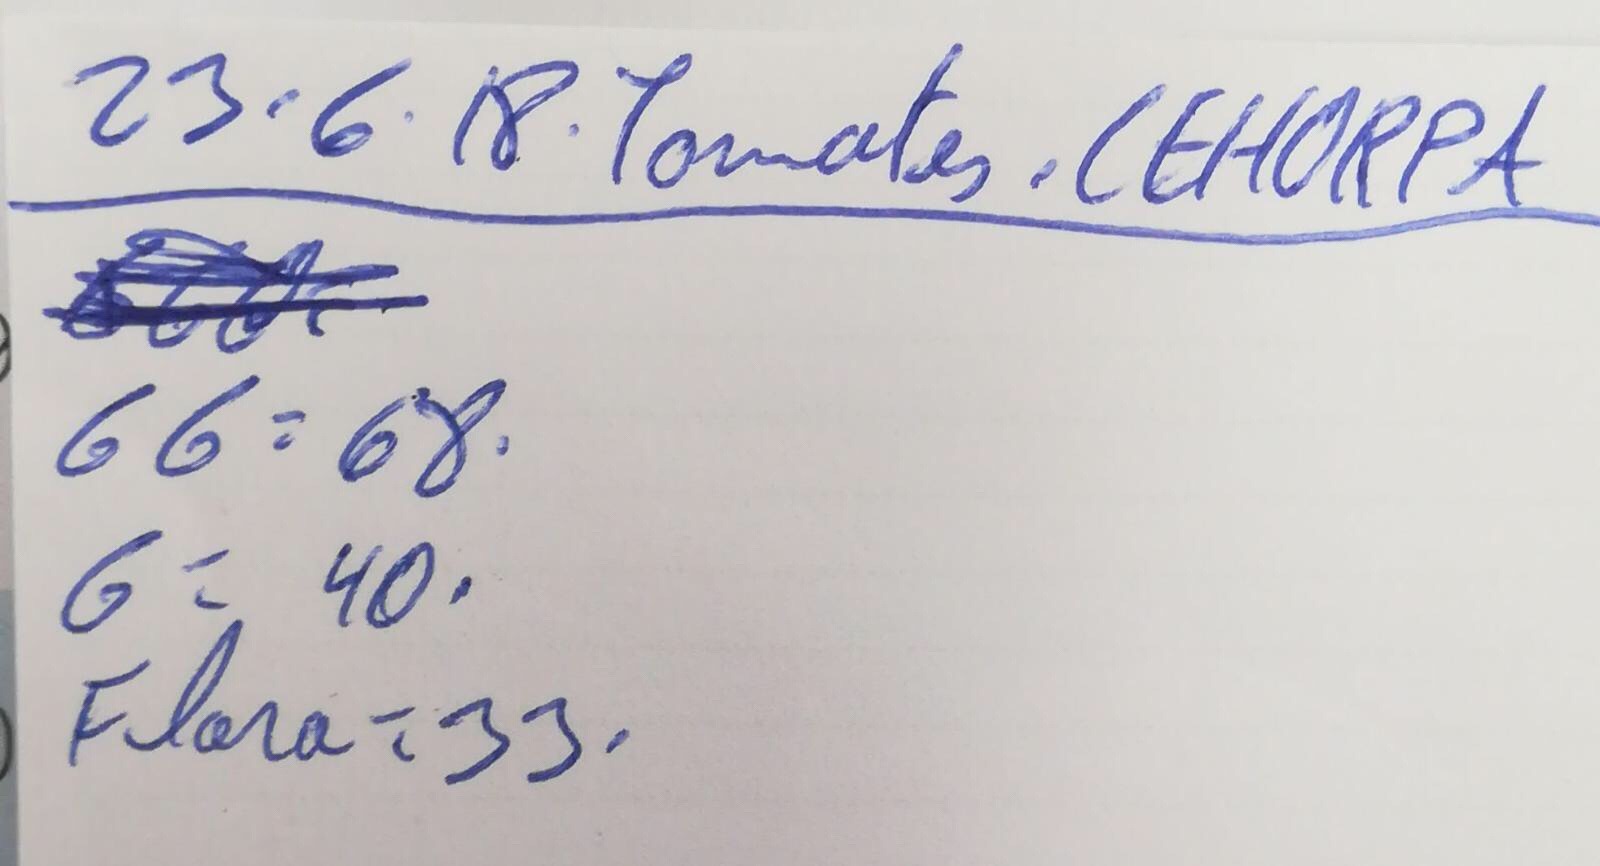 23.6.18. Tomates. CEHORPA
GG = 68.
G = 40.
Flora = 33.